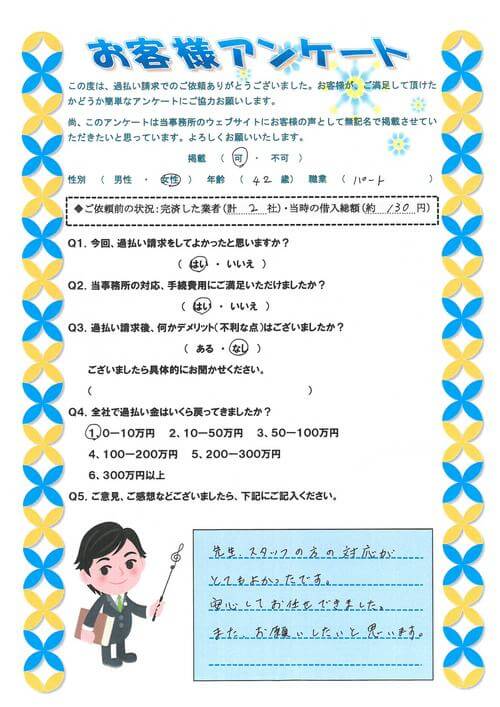 お客様アンケート
この度は、過払い請求でのご依頼ありがとうございました。お客様が、ご満足して頂けた
かどうか簡単なアンケートにご協力お願いします。
尚、このアンケートは当事務所のウェブサイトにお客様の声として無記名で掲載させてい
ただきたいと思っています。よろしくお願いいたします。
掲載 ( 可 ・ 不可 )
性別 ( 男性 ・ 女性 ) 年齢 ( 42 歳) 職業 ( パート )
◆ご依頼前の状況:完済した業者(計 2 社)・当時の借入総額(約 130 円)
Q1. 今回、過払い請求をしてよかったと思いますか?
( はい ・ いいえ )
Q2. 当事務所の対応、手続費用にご満足いただけましたか?
( はい ・ いいえ )
Q3. 過払い請求後、何かデメリット(不利な点)はございましたか?
( ある ・ なし )
ございましたら具体的にお聞かせください。
( )
Q4. 全社で過払い金はいくら戻ってきましたか?
1、0-10万円 2、10-50万円 3、50-100万円
4、100-200万円 5、200-300万円
6、300万円以上
Q5. ご意見、ご感想などございましたら、下記にご記入ください。
先生、スタッフの方の対応が
とてもよかったです。
安心してお任せできました。
また、お願いしたいと思います。